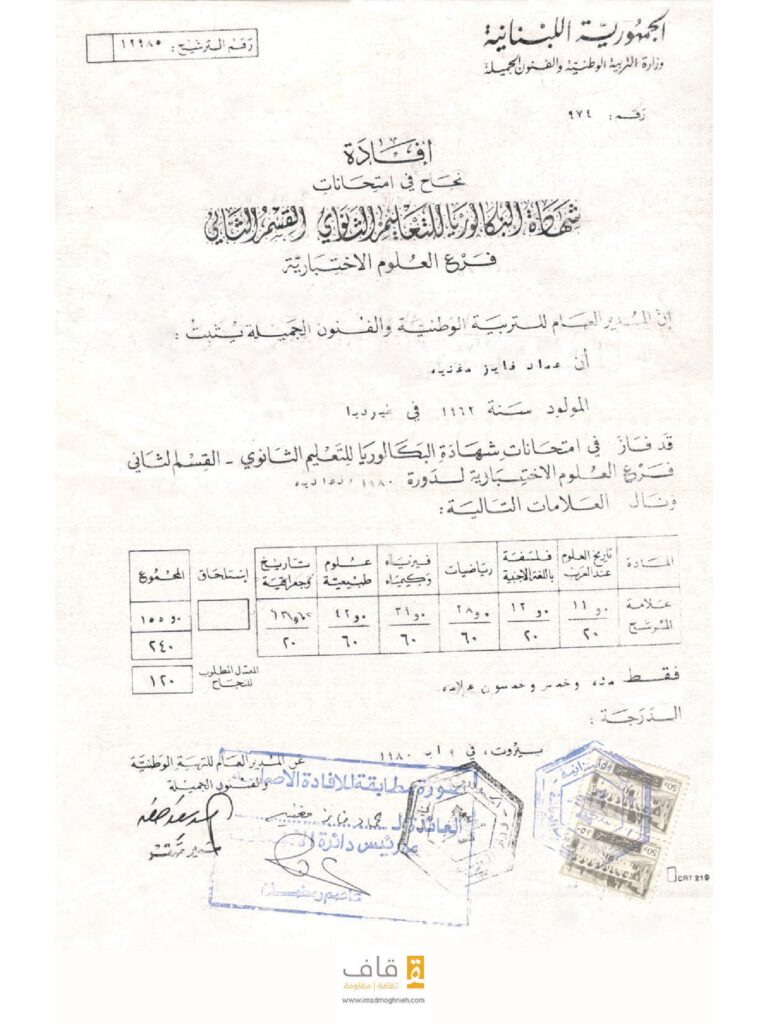 الجمهوريّة اللبنانية
وزارة التربية الوطنيّة والفنون الجميلة
رقم الترشيح: ١٢٩٨٥
رقم: ٩٧٤
افادة
نجاح في امتحانات
شهادة البكالوريا للتعليم الثانوي القسم الثاني
فرع العلوم الاختباريّة
إن المدير العام للتربية الوطنيّة والفنون الجميلة يثبت:
أن عماد فايز مغنيه
المولود سنة ١٩٦٢ في
قد فاز في امتحانات شهادة البكالوريا للتعليم الثانوي - القسم لثاني
فرع العلوم الاختبارية لدورة ١٩٨٠
ونال العلامات التالية:
المادة تاريخ العلوم عند العرب فلسفة باللغة الاجنبية رياضيات فيزياء وكيمياء علوم طبيعية تاريخ وجغرافية إستلحاق المجموع
علامة المترشح ١١٫٠ ١٢٫٠ ٢٨٫٠ ٤٢٫٠ ١٥٥٫٠
٢٠ ٢٠ ٦٠ ٦٠ ٦٠ ٢٠ ٢٤٠
المعدل المطلوب للنجاح ١٢٠
فقط مئه وخمس وخمسون علامه
الدرجة:
بيروت، في آب ١٩٨٠
عن المدير العام للتربية الوطنيّة
والفنون الجميلة
صورة مطابقة للافادة الاصلية
العائدة لـ عماد فايز مغنيه
رئيس دائرة
50p
50p
CRT 219
قاف
ثقافة | مقاومة
www.imadmoghnieh.com